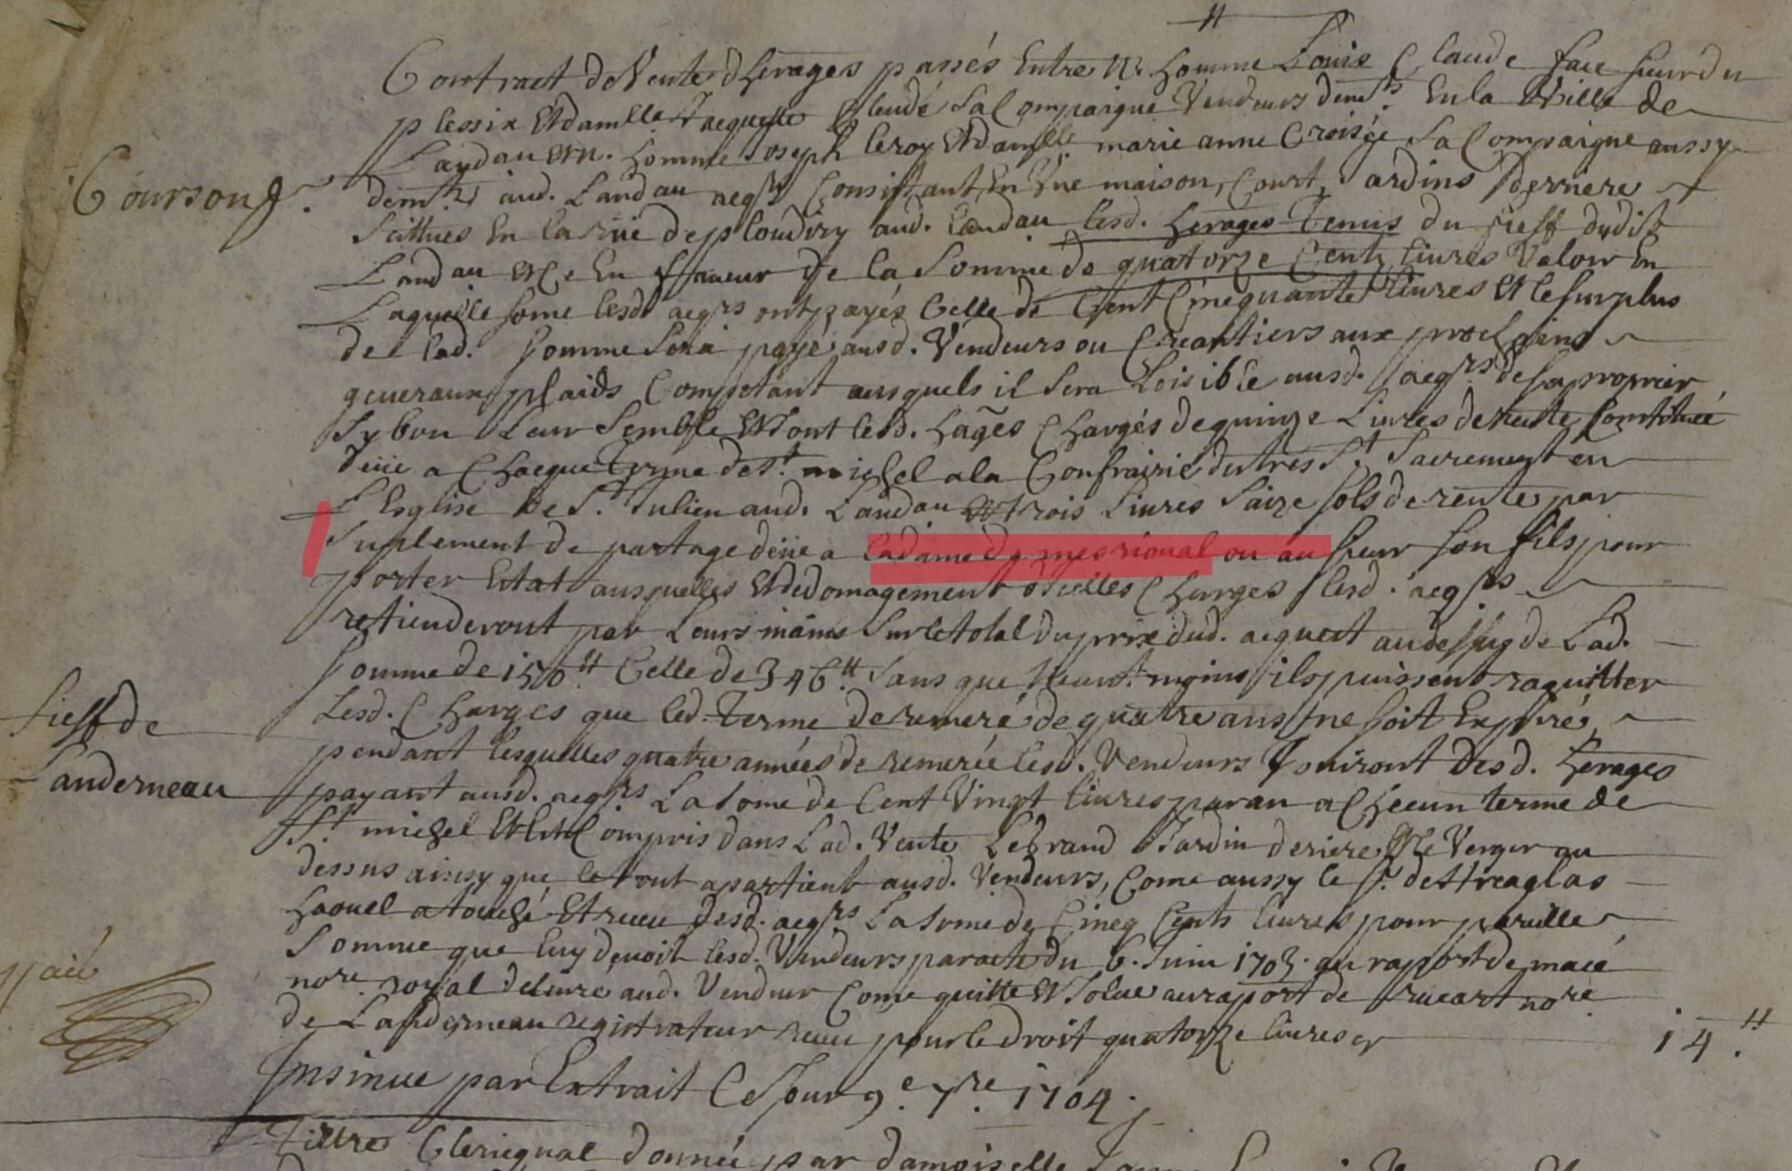 Contract de Vente d'herages passés Entre N. homme Louis Claude face sieur du
plessix Et damlle Jacquette Sa Compaigne Vendeurs demts En la Ville de
Landau Et n. homme Joseph leroy Et damlle marie anne Croisée Sa Compaigne aussy
Courson
demts aud. Landau aeqrs Consistant En Une maison, Court, Jardins Derriere
Scittues En la rüe de ploudiry aud. Landau lesd. herages Tenus du fieff dudit
Landau Et Ce En faveur de la Somme de quatorze Cents livres Valoir En
Laquelle some lesd aeqrs ont payés Celle de Cent Cincquante livres Et le surplus
de lad. somme sera payé ausd. Vendeurs ou Creantiers aux prochains
generaux plaids Competant ausquels il Sera Loisible ausd. aeqrs de saproprier
Sy bon Leur Semble Et sont lesd. hages Chargés de quinze Livres de rente Constituée
deüe a Chacque Terme de St. michel a la Confrairie du tres St Sacrement en
L'Esglise de St. Julien aud. Landau Et trois Livres Saize sols de rente par
Suplement de partage deüe a la dame de mesrioual ou au sieur son fils pour
porter Estat ausquelles Et dedomagement d'Icelles Charges lesd. aeqrs
retienderont par Leurs mains Sur le total du prix dud. acquest au dessus de Lad.
Somme de 150tt Celle de 346tt Sans que neantmoins ils puissent raquitter
fieff de
Lesd. Charges que led. Terme de remeré de quatre ans ne soit Expiré,
pendant lesquelles quatre années de remerée lesd. Vendeurs Jouiront desd. herages
Landerneau
payant ausd. aeqrs La some de Cent Vingt livres par an a Checun terme de
St michel Et Est Compris dans Lad. Vente Le Grand Jardin deriere Et le Verger au
dessus ainsy que le tout apartient ausd. Vendeurs, Come aussy le Sr. de Treaglas
haouel a touché Et receu desd. aeqrs La some de Cincq Cents livres pour pareille
Somme que luy devoit lesd. Vendeurs par acte du 6. Juin 1703. au raport de macé
paié
nore. royal delivre aud. Vendeur Come quitte Et Solue au raport de nore.
de Landerneau registrateur receu pour le droit quatorze livres cy
14tt.
Insinue par Extrait Ce Jour 9.e 7.re 1704.
Tittre Clericqual donnée par damoiselle